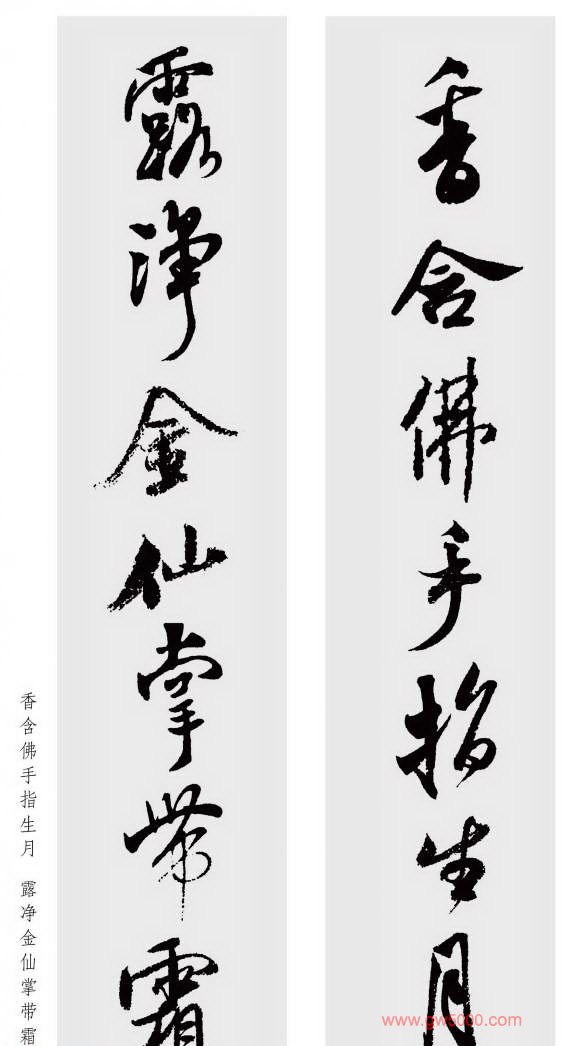 香含佛手指生月
露淨金仙掌帶霜
香含佛手指生月 露净金仙掌带霜
www.gw5000.com